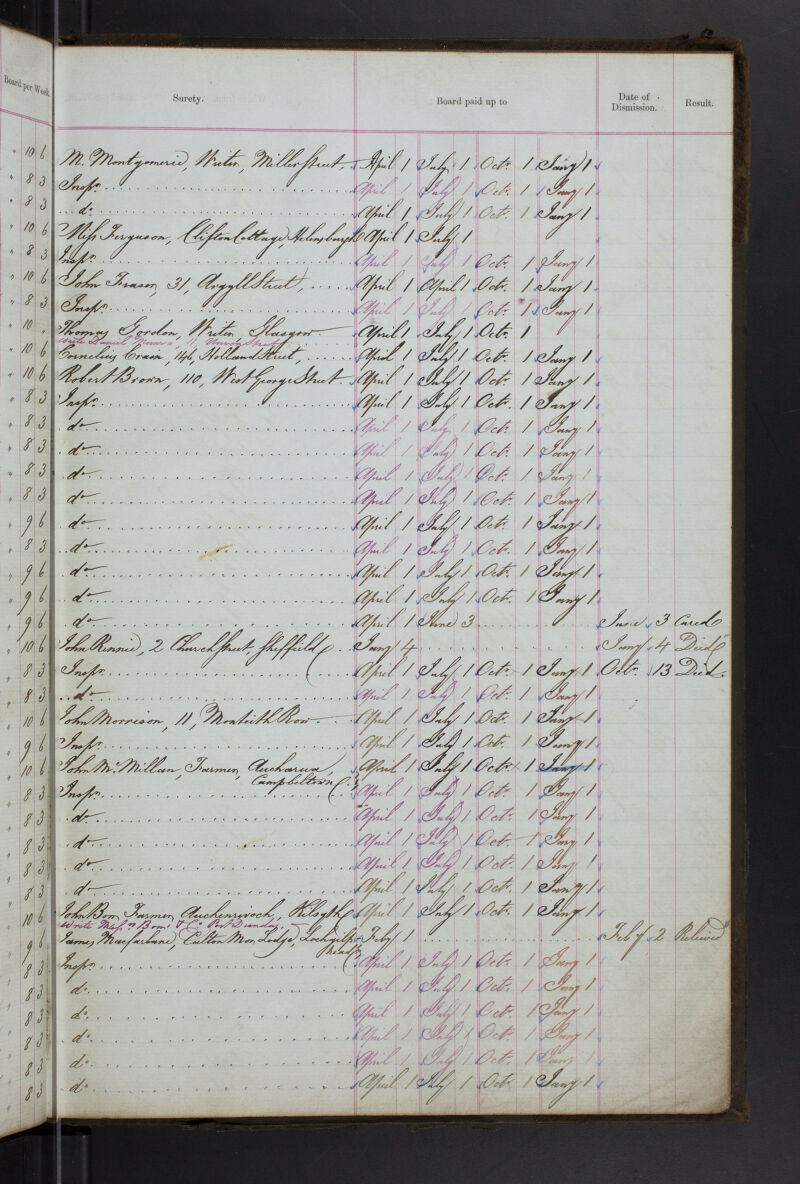 Board per Week. Surety. Board paid up to Date of Dismission. Result.
" 10 6 M. Montgomerie, Writer, Miller Street, April 1 July 1 Octr. 1 Jany 1
" 8 3 Inspr. April 1 July 1 Octr. 1 Jany 1
" 8 3 do April 1 July 1 Octr. 1 Jany 1
" 10 6 Miss Ferguson, Clifton Cottage Helensburgh April 1 July 1
" 8 3 Inspr. April 1 July 1 Octr. 1 Jany 1
" 10 6 John Fraser, 31, Argyll Street, April 1 April 1 Octr. 1 Jany 1
" 8 3 Inspr. April 1 July 1 Octr. 1 Jany 1
" 10 " Thomas Gordon, Writer, Glasgow April 1 July 1 Octr. 1
Write Daniel 11,
" 10 6 Cornelius 146, Holland Street, April 1 July 1 Octr. 1 Jany 1
" 10 6 Robert Brown, 110, West George Street April 1 July 1 Octr. 1 Jany 1
" 8 3 Inspr. April 1 July 1 Octr. 1 Jany 1
" 8 3 do April 1 July 1 Octr. 1 Jany 1
" 8 3 do April 1 July 1 Octr. 1 Jany 1
" 8 3 do April 1 July 1 Octr. 1 Jany 1
" 8 3 do April 1 July 1 Octr. 1 Jany 1
" 9 6 do April 1 July 1 Octr. 1 Jany 1
" 8 3 do April 1 July 1 Octr. 1 Jany 1
" 9 6 do April 1 July 1 Octr. 1 Jany 1
" 9 6 do April 1 July 1 Octr. 1 Jany 1
" 9 6 do April 1 June 3 June 3 Cured
" 10 6 John Rennie, 2 Church Street, Sheffield Jany 4 Jany 4 Died
" 8 3 Inspr. April 1 July 1 Octr. 1 Jany 1 Octr. 13 Died
" 8 3 do April 1 July 1 Octr. 1 Jany 1
" 10 6 John Morrison, 11, Monteith Row April 1 July 1 Octr. 1 Jany 1
" 9 6 Inspr. April 1 July 1 Octr. 1 Jany 1
" 10 6 John McMillan, Farmer, April 1 July 1 Octr. 1 Jany 1
Campbeltown
" 8 3 Inspr. April 1 July 1 Octr. 1 Jany 1
" 8 3 do April 1 July 1 Octr. 1 Jany 1
" 8 3 do April 1 July 1 Octr. 1 Jany 1
" 8 3 do April 1 July 1 Octr. 1 Jany 1
" 8 3 do April 1 July 1 Octr. 1 Jany 1
" 10 6 John Bow, Farmer, Kilsyth April 1 July 1 Octr. 1 Jany 1
Write Messrs Bow & Co. Port Dundas.
" 9 6 James Macfarlane, Lodge, Lochgilp Feby 1 Feby 2 Relieved
head
" 8 3 Inspr. April 1 July 1 Octr. 1 Jany 1
" 8 3 do. April 1 July 1 Octr. 1 Jany 1
" 8 3 do. April 1 July 1 Octr. 1 Jany 1
" 8 3 do. April 1 July 1 Octr. 1 Jany 1
" 8 3 do. April 1 July 1 Octr. 1 Jany 1
" 8 3 do. April 1 July 1 Octr. 1 Jany 1